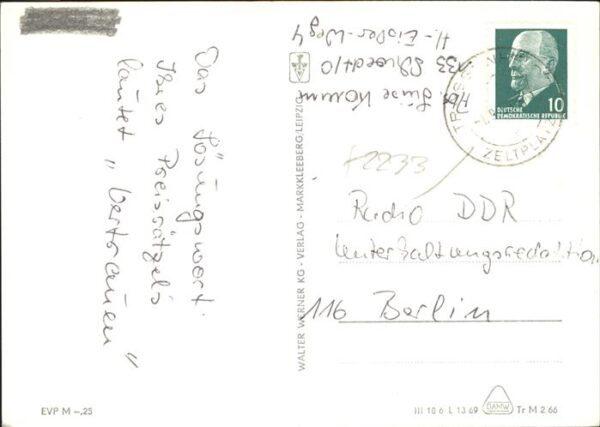 Das Lösungswort
Ihres Preisrätsels
lautet „Vertrauen“
WALTER WERNER KG - VERLAG - MARKKLEEBERG/LEIPZIG
Abs.
133 Schwedt/O
H.-Eisler-Weg 4
10
DEUTSCHE
DEMOKRATISCHE REPUBLIK
ZELTPLATZ
Radio DDR
Unterhaltungsredaktion
116 Berlin
EVP M -,25
III 18 6 L 13 69
Tr M 2 66